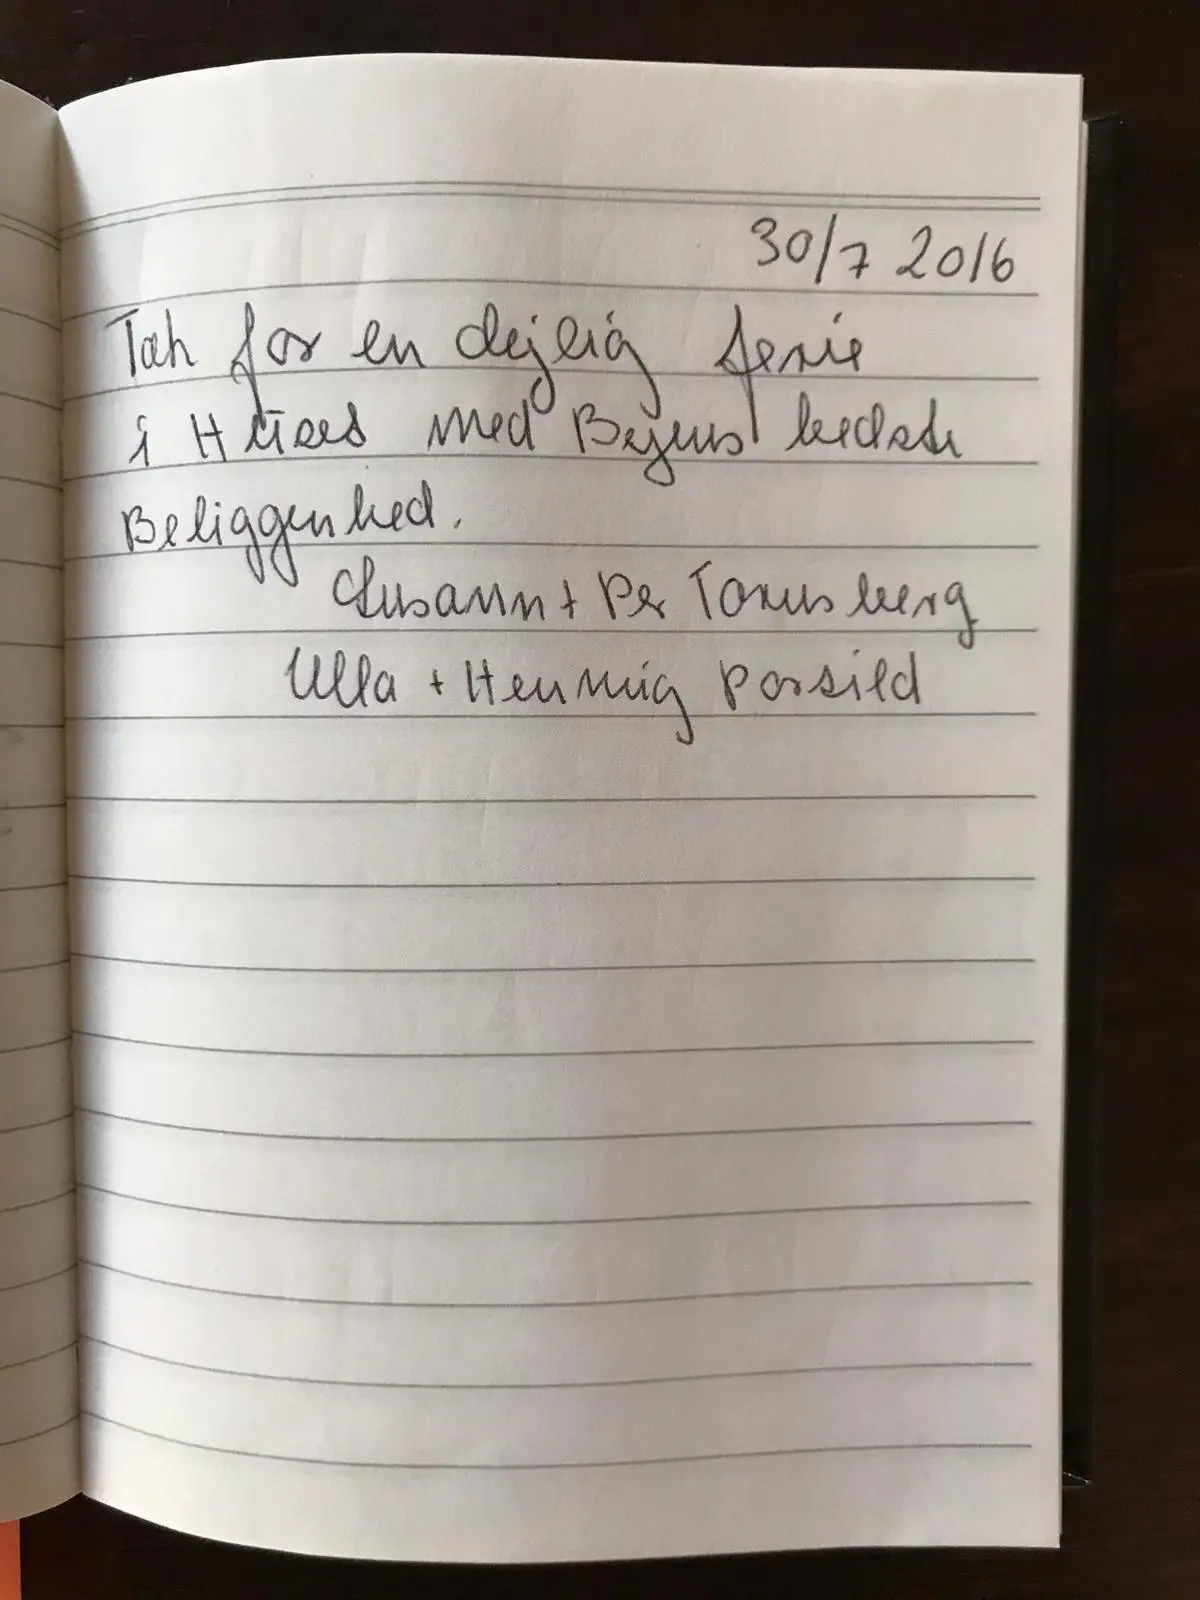 30/7 2016
Tak for en dejlig ferie
i Huset med Byens bedste
Beliggenhed.
Susann + Per Tornsberg
Ulla + Henning Porsild